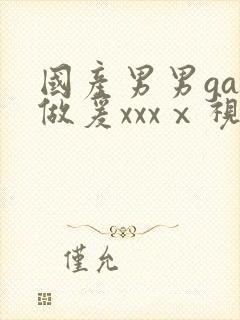 國產男男ga
做爰xxxⅹ視
僅允